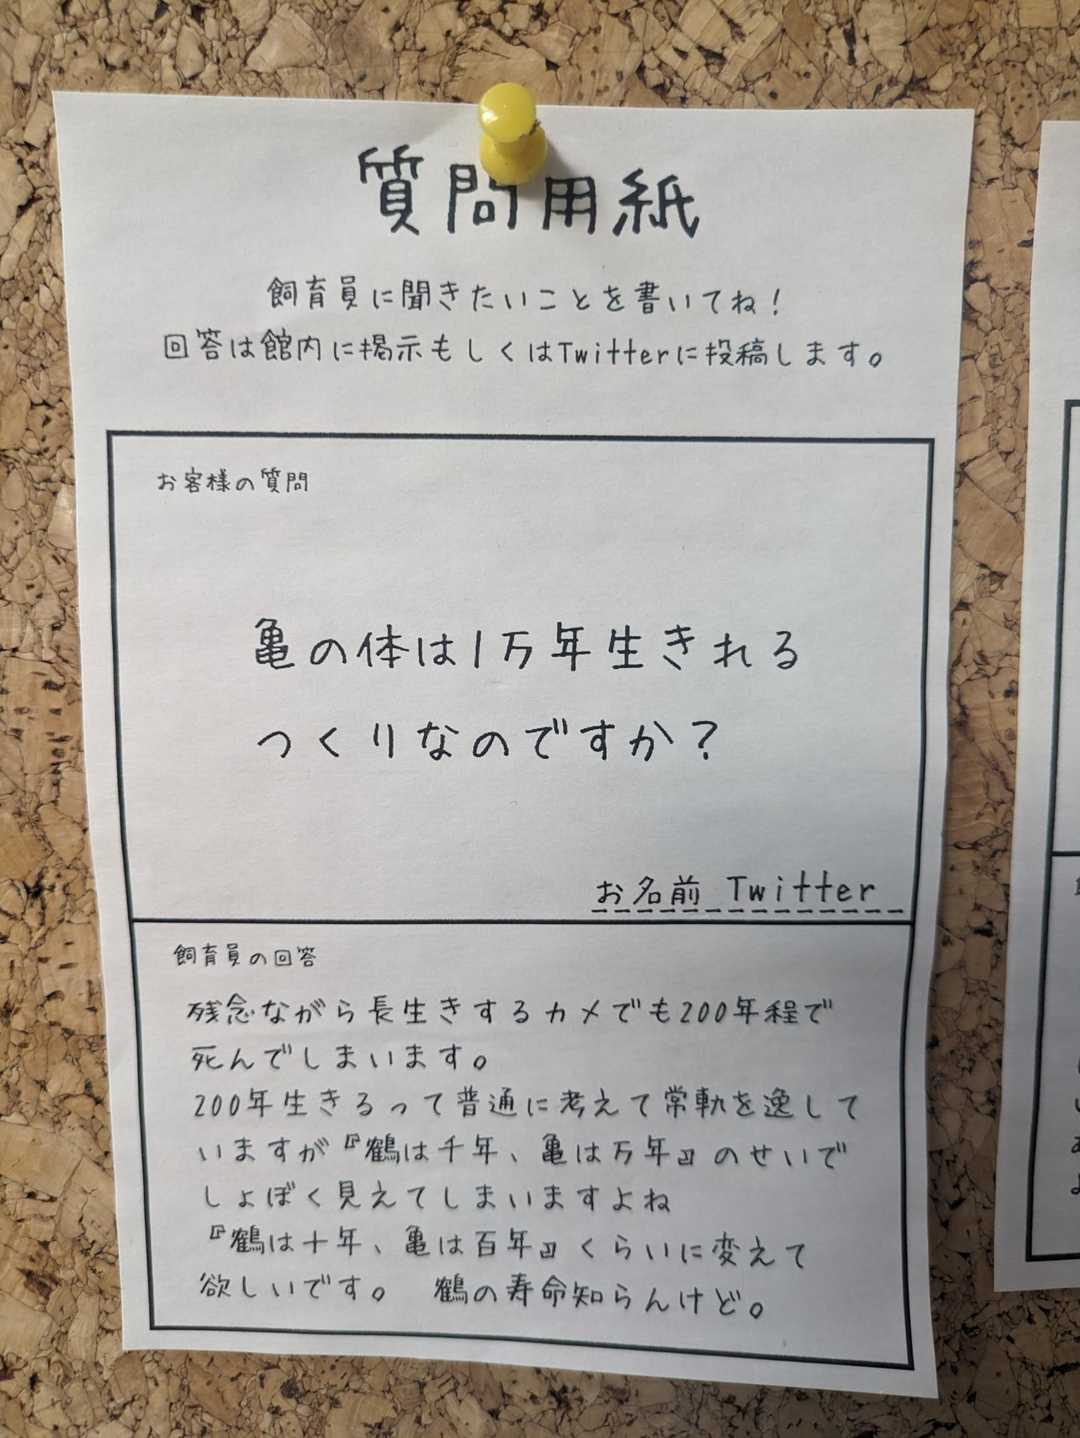 質問用紙
飼育員に聞きたいことを書いてね！
回答は館内に掲示もしくはTwitterに投稿します。
お客様の質問
亀の体は1万年生きれる
つくりなのですか？
お名前 Twitter
飼育員の回答
残念ながら長生きするカメでも200年程で
死んでしまいます。
200年生きるって普通に考えて常軌を逸して
いますが『鶴は千年、亀は万年』のせいで
しょぼく見えてしまいますよね
『鶴は十年、亀は百年』くらいに変えて
欲しいです。 鶴の寿命知らんけど。